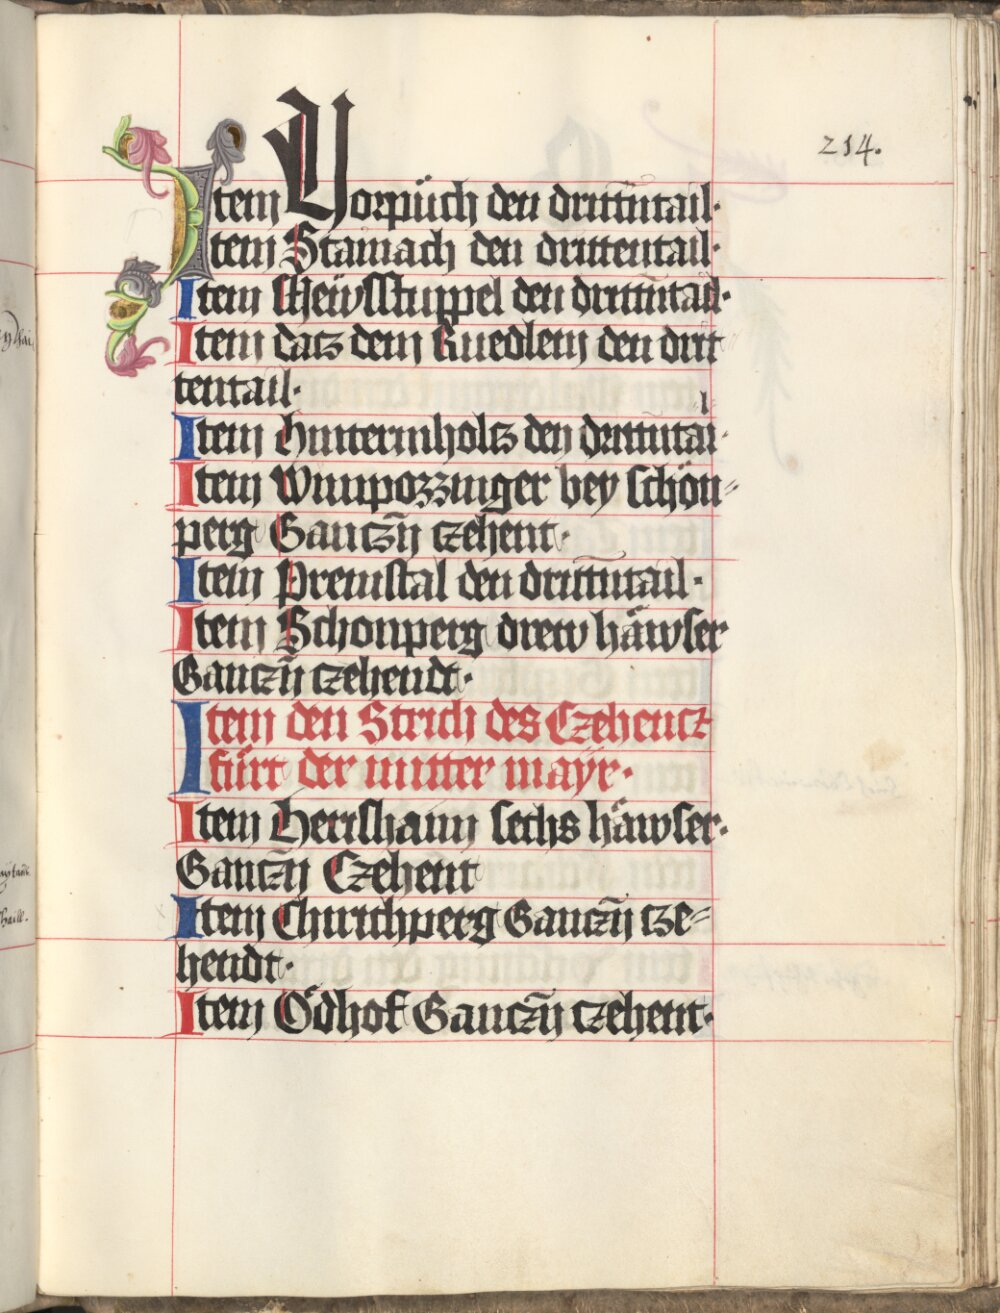 214.
Item Vorpüch den drittn̄tail·
Item Stainach den drittentail·
Item Heẅsstuppel den drittn̄tail·
Item Datz dem Kuedlein den drit
tentail·
Item Hintermholtz den drittn̄tail·
Item Wunpozzinger bey schön-
perg Gantzn̄ czehent·
Item Premstal den drittn̄tail·
Item Schonperg drew häwser
Ganczn̄ czehendt·
Item den Strich des Czehencz
fürt der mitter maÿr·
Item Herrshaim sechs häwser·
Ganczn̄ Czehent
Item Chirichperg Ganczn̄ cze-
hendt·
Item Ödhof Ganczn̄ czehent·